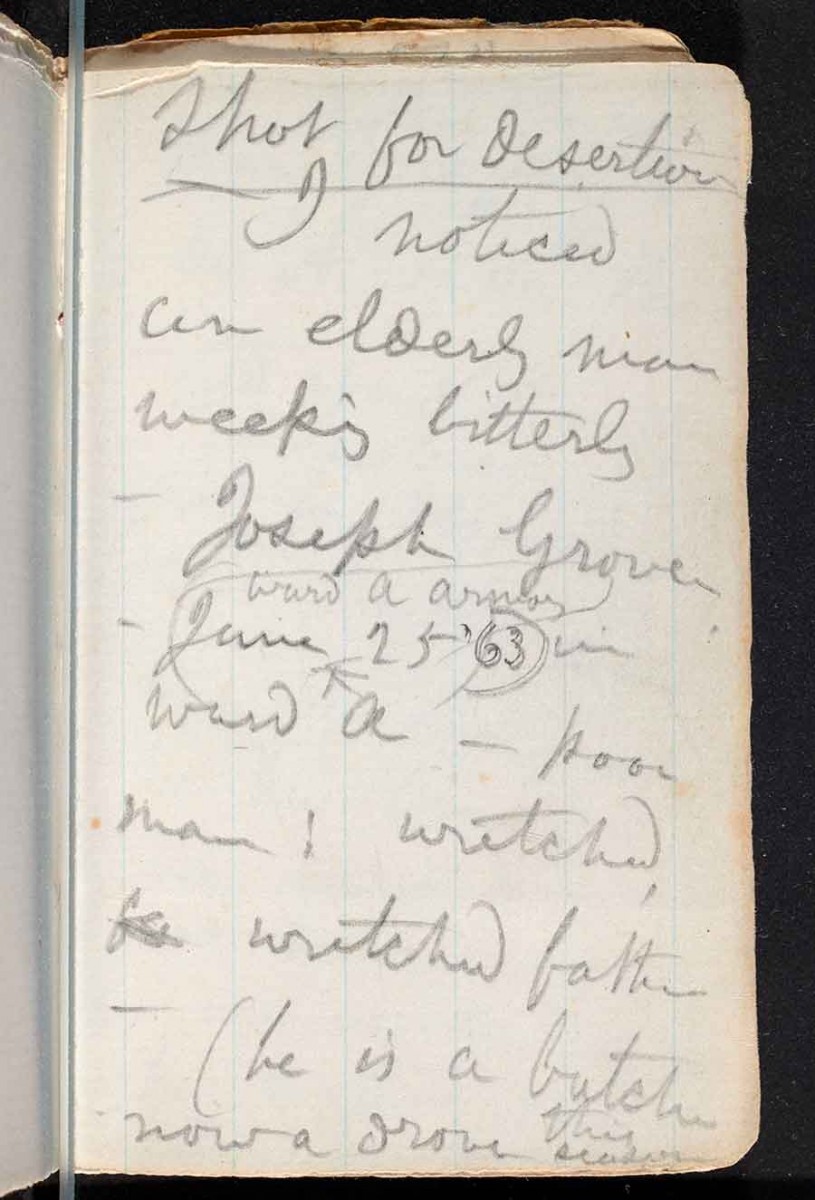 Shot for Desertion
I noticed
an elderly man
weeping bitterly
— Joseph Grover
ward A armory
— June 25 '63 in
ward A — poor
man! wretched,
wretched father
— (he is a butcher
now a drover this
season